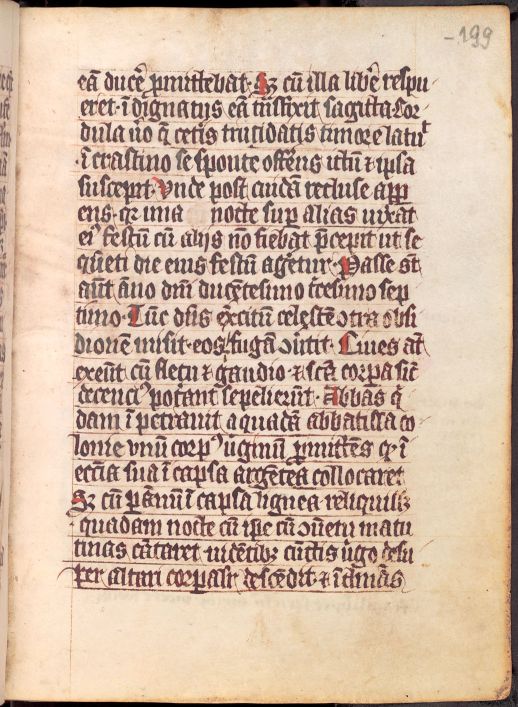 -199
eā ducē ꝓmittebat· Sꝫ cū illa libē respu
eret· īdignatꝰ eā trāsfixit sagitta Cor
dula ūo q̄ cetis trucidatis timore latuͭ
·ī crastino se sponte offēns ictū ⁊ ipsa
suscepit· Vnde post cuidā recluse app
ens· qꝛ una nocte suꝑ alias vixāt
eiꝰ festū cū alijs nō fiebāt p̄cepit ut se
quēti die eius festū agētur· Passe st̄
aūt āno dn̄i ducētesimo tͥcesimo sep
timo· Tūc dn̄s excitū celestē ↄtra obsi
dionē misit· eos fugā ↄūtit· Ciues at̄
exeūt cū fletu ⁊ gaudio· ⁊ sc̄a corpa sic̄
decenciꝰ potāt sepelierūt· Abbas q̄
dam īpetrauit a quadā abbatissa co
lonie vnū corpꝰ uginū ꝓmittēs qꝫ ī
eccīa sua ī capsa argētea collocaret
Sꝫ cū ꝑ ānū ī capsa lignea reliquiss
quadam nocte cū ip̄e cū ↄuētu matu
tinas cātaret· vidētibꝫ cūctis ūgo desu
per altari corpalr̄ descēdit· ⁊ īclināš